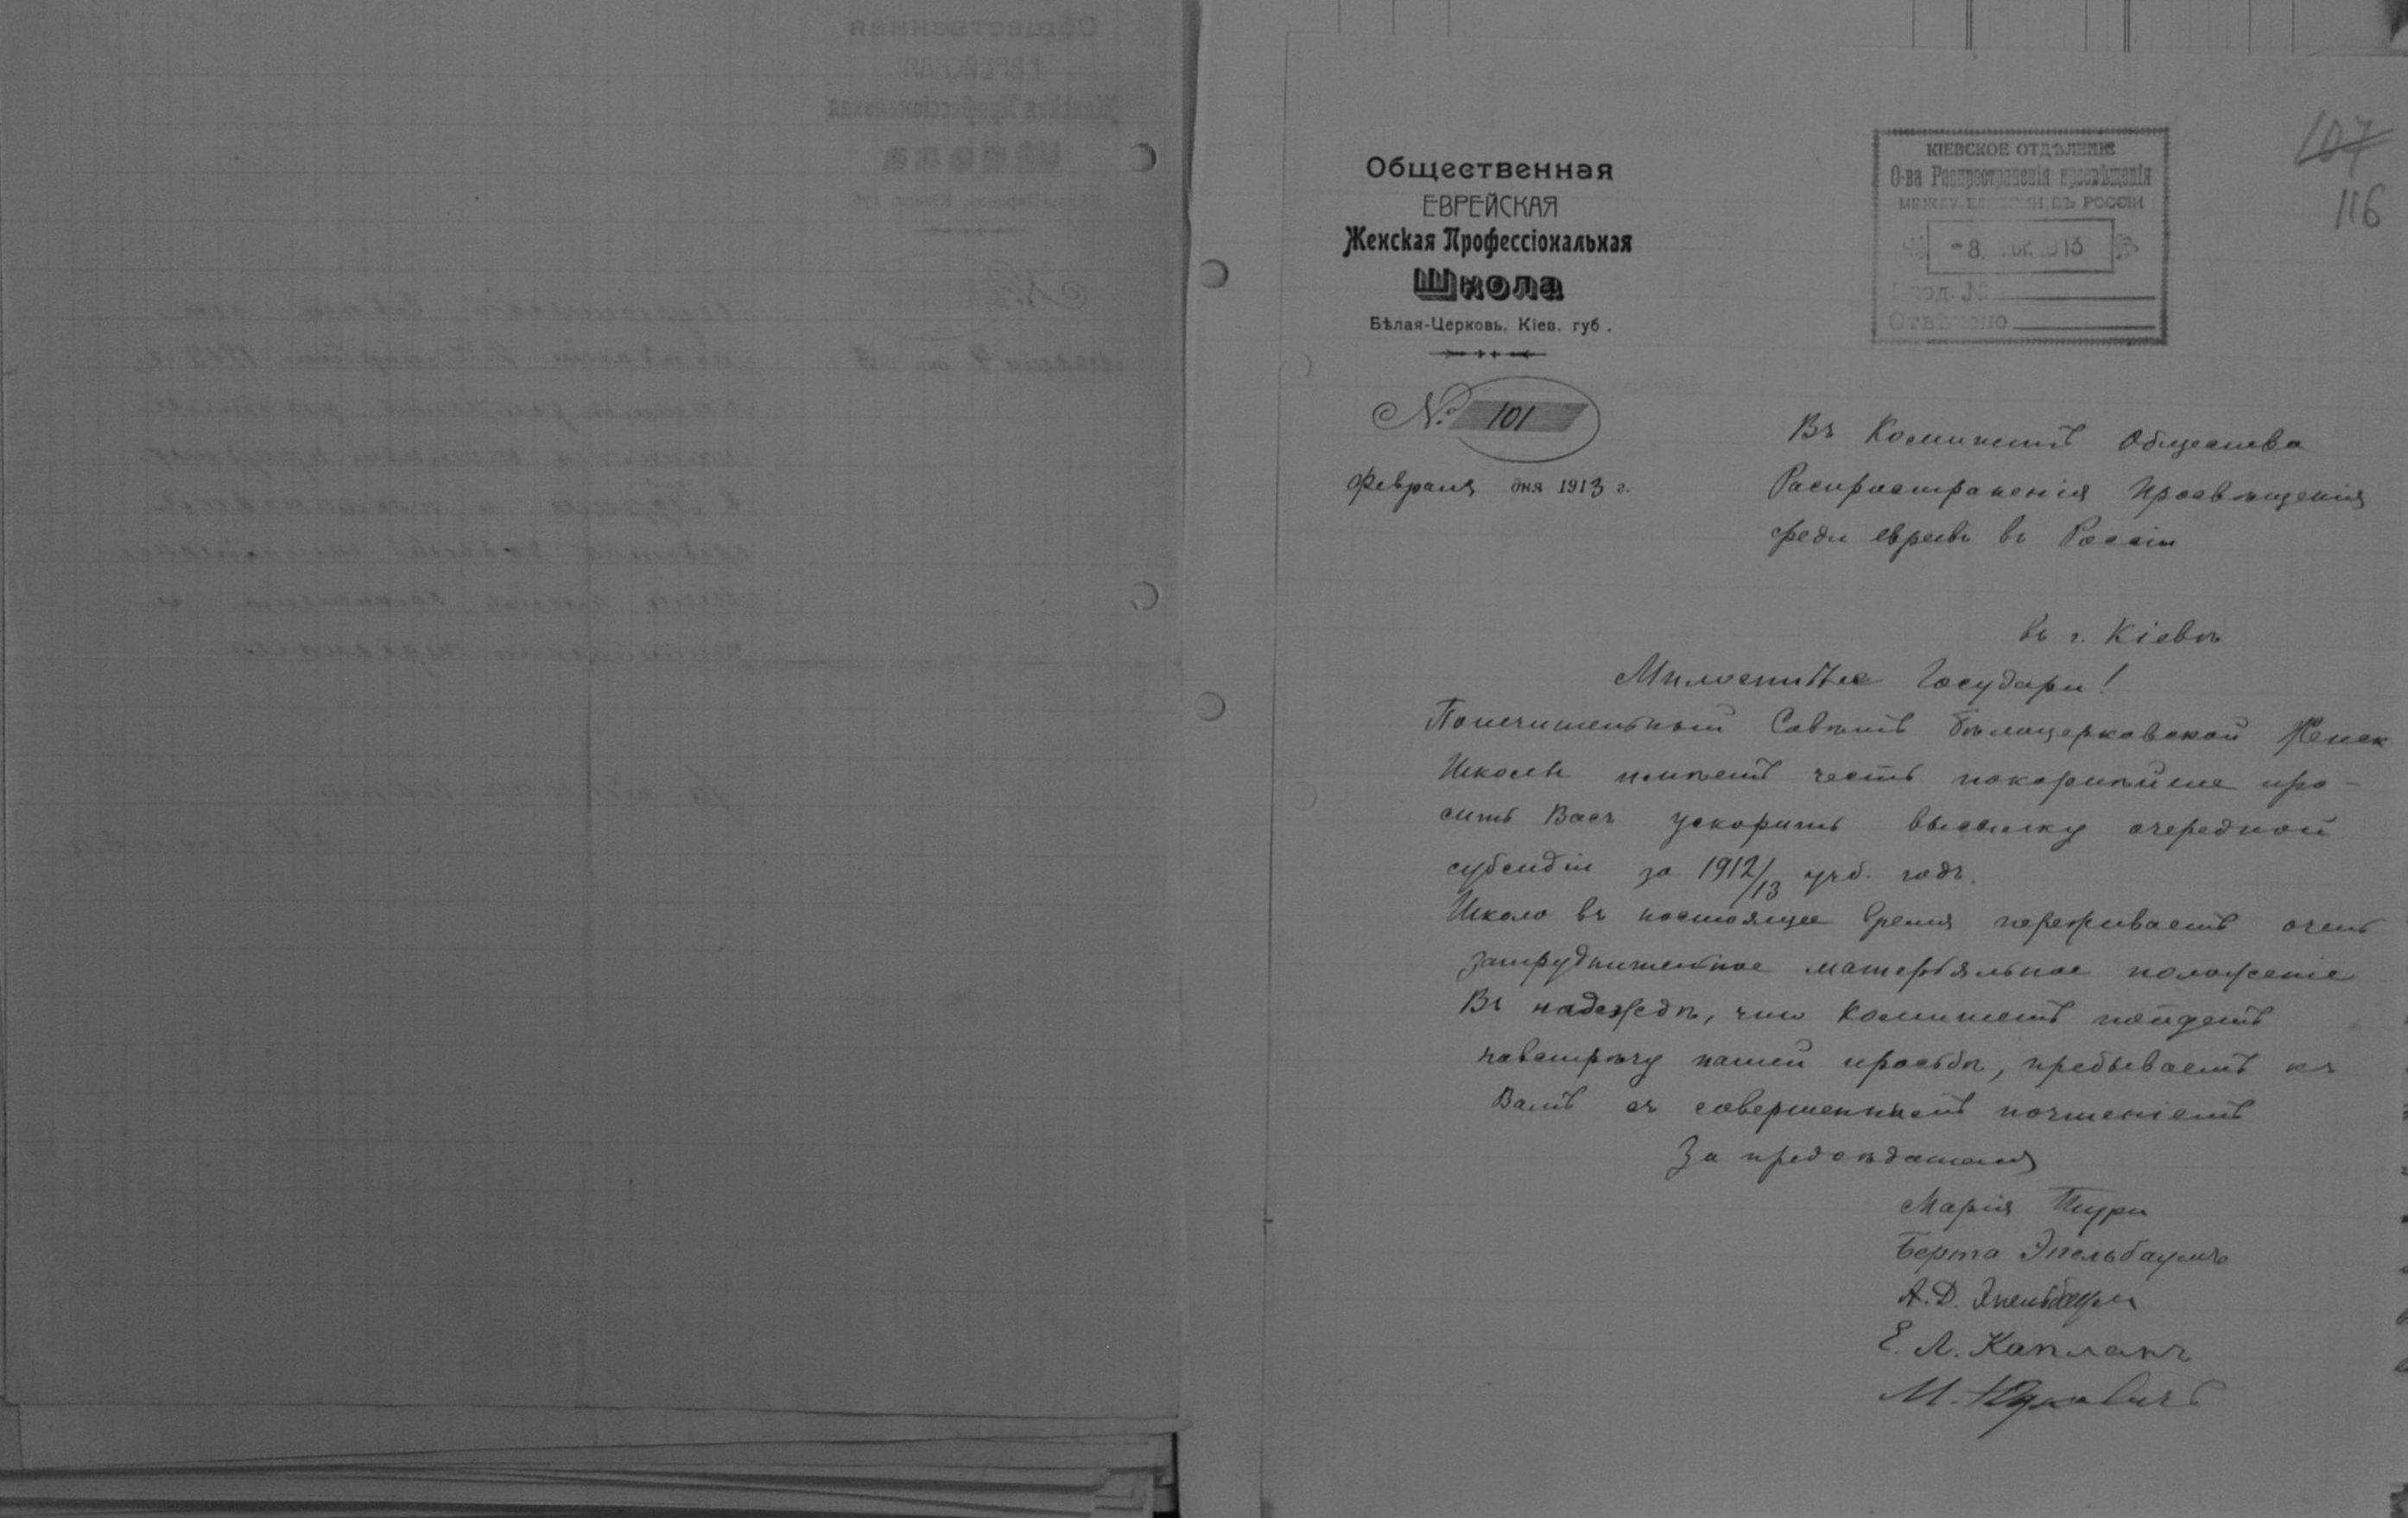 Общественная
ЕВРЕЙСКАЯ
Женская Професcіональная
Школа
Бѣлая-Церковь, Кіев. губ.
№ 101
Февраля дня 1913 г.
КІЕВСКОЕ ОТДѢЛЕНІЕ
О-ва Распространенія просвѣщенія
МЕЖДУ ЕВРЕЯМИ ВЪ РОССІИ
-8. 1913
Вход. №
Отвѣчено
107
116
Въ Комитетъ Общества
Распространенія Просвѣщенія
среди евреевъ въ Россіи
въ г. Кіевѣ
Милостивые Государи!
Попечительный Совѣтъ Бѣлоцерковской Женск
Школы имѣетъ честь покорнѣйше про-
сить Васъ ускорить высылку очередной
субсидіи за 1912/13 учб. годъ.
Школа въ настоящее время переживаетъ очень
затруднительное матерьяльное положеніе
Въ надеждѣ, что Комитетъ пойдетъ
навстрѣчу нашей просьбѣ, пребываетъ къ
Вамъ съ совершеннымъ почтеніемъ
За предсѣдателя
Марія
Берта Эпельбаумъ
А. Д. Эпельбаум
Е. Л. Капланъ
М.